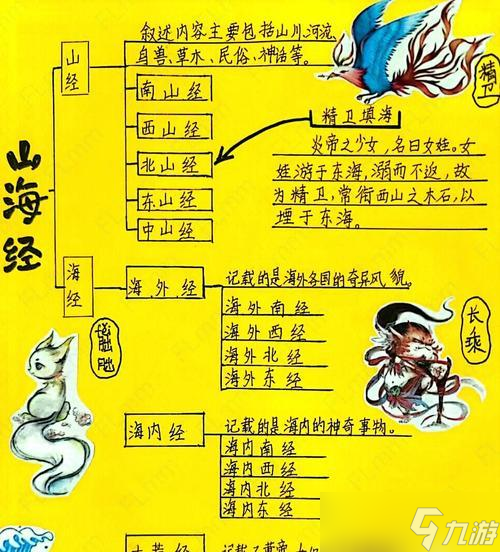 山海经
山经
叙述内容主要包括山川、河流、
鸟兽、草木、民俗、神话等。
精卫
南山经
西山经
北山经
东山经
中山经
精卫填海
炎帝之少女，名曰女娃。女
娃游于东海，溺而不返，故
为精卫，常衔西山之木石，以
堙于东海。
海经
海外经
记载的是海外各国的奇异风貌。
海外南经
海外西经
海外北经
海外东经
长乘
海内经
记载的是海内的神奇事物。
海内南经
海内西经
海内北经
海内东经
大荒经
九游